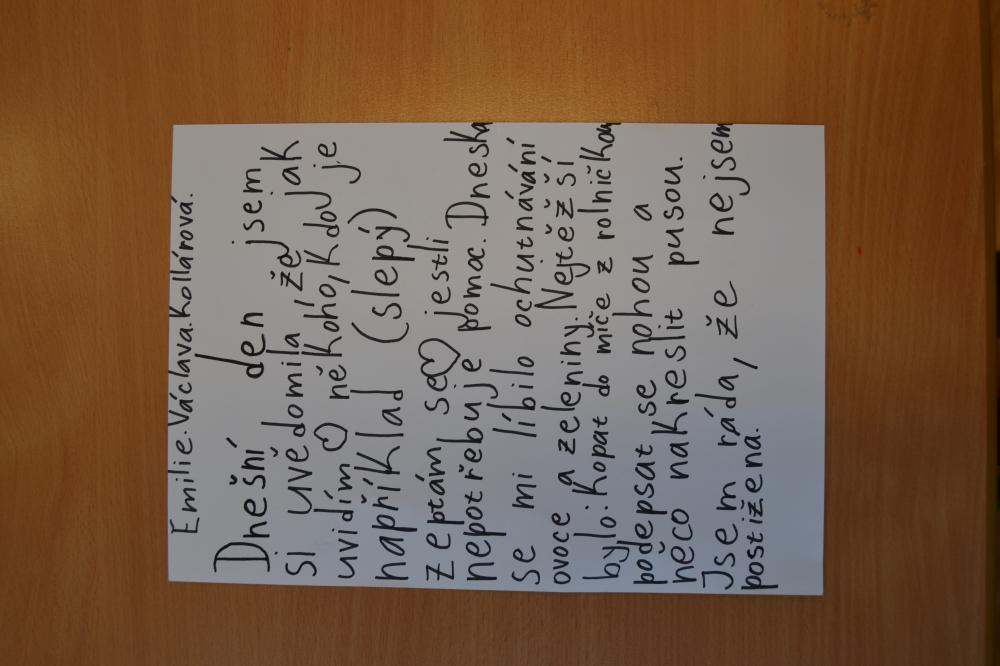 Emilie.Václava.Kollárová.
Dnešní den jsem
si uvědomila, že jak
uvidím ♡ někoho, kdo je
například (slepý)
zeptám se♡ jestli
nepotřebuje pomoc. Dneska
se mi líbilo ochutnávání
ovoce a zeleniny. Nejtěžší
bylo: kopat do míče z rolničkou
podepsat se nohou a
něco nakreslit pusou.
Jsem ráda, že nejsem
postižena.